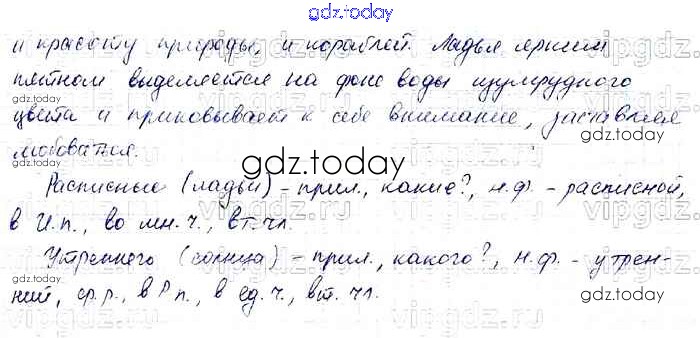 gdz.today
и красоту природы, и кораблей. Ладья ярким
пятном выделяется на фоне воды изумрудного
цвета и приковывает к себе внимание, заставляя
любоваться.
gdz.today
Расписные (ладьи) – прил., какие?, н.ф. – расписной,
в И.п., во мн.ч., вт.чл.
Утреннего (солнца) – прил., какого?, н.ф. – утрен-
ний, ср.р., в Р.п., в ед.ч., вт.чл.